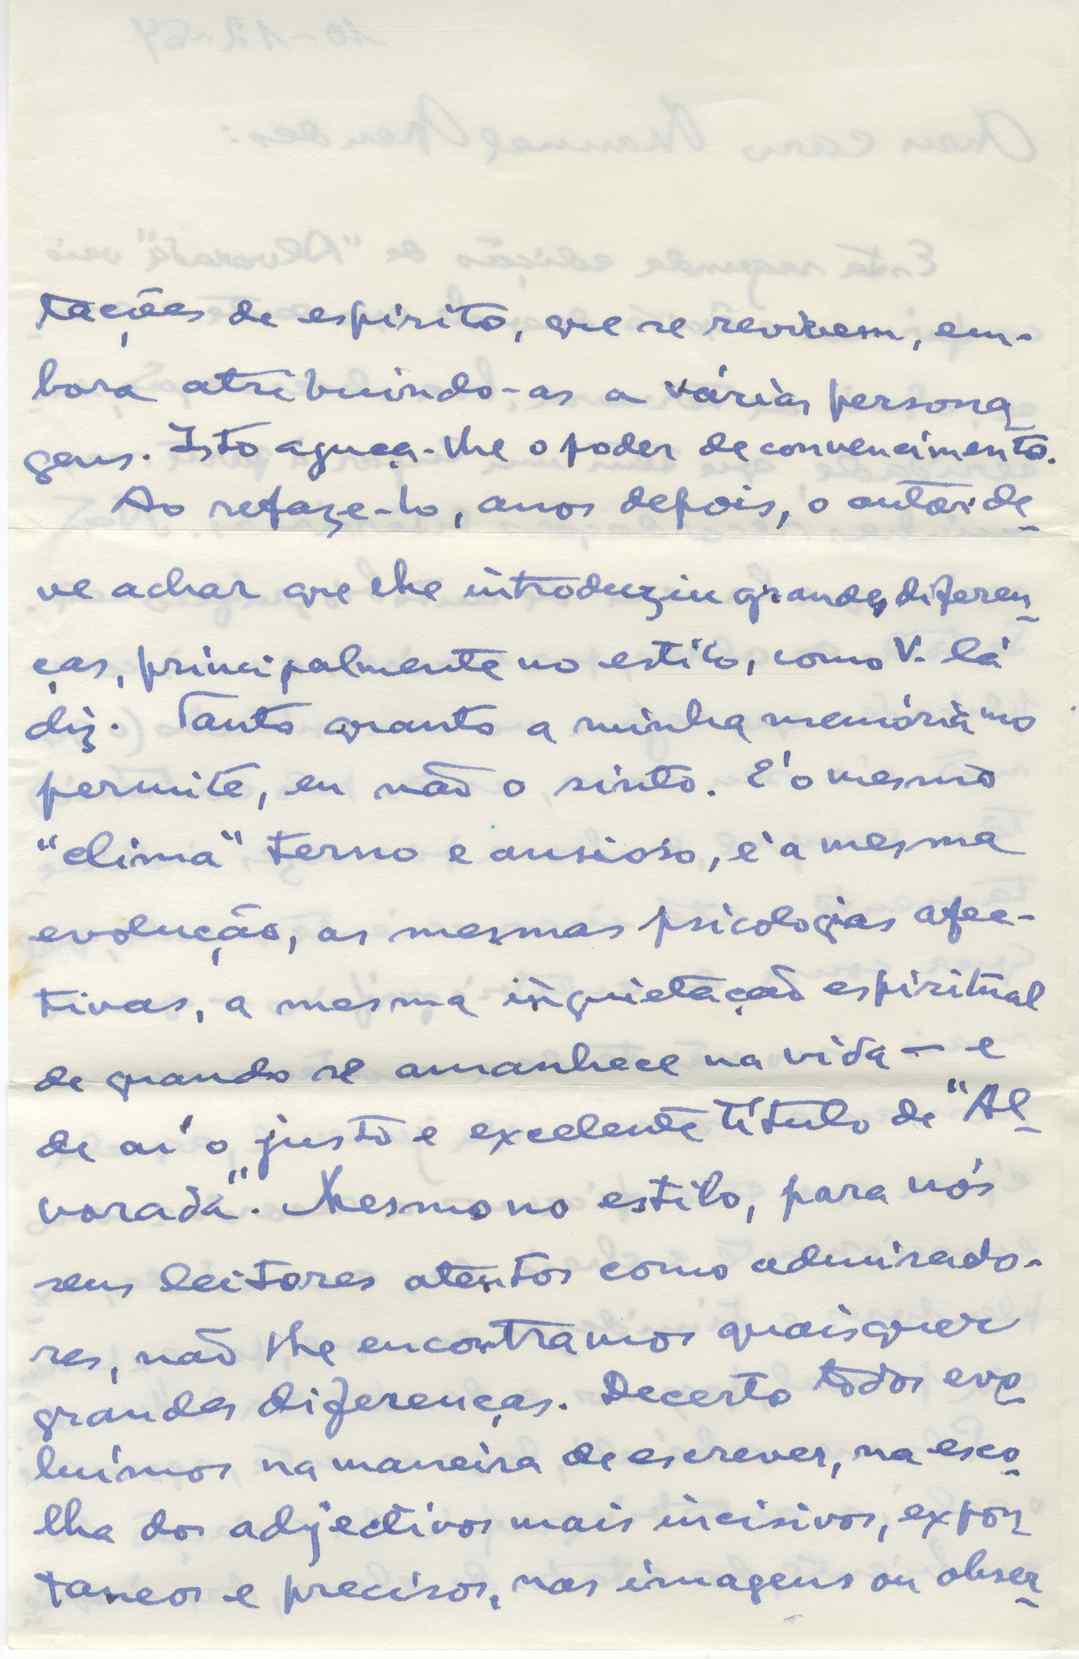 tações de espirito, que se revivem, em-
bora atribuindo-as a várias persona
gens. Isto aguça-lhe o poder de convencimento.
Ao refaze-lo, anos depois, o autor de
ve achar que lhe introduziu grandes diferen
ças, principalmente no estilo, como V. lá
diz. Tanto quanto a minha memória mo
permite, eu não o sinto. E' o mesmo
"clima" terno e ansioso, e' a mesma
evolução, as mesmas psicologias afec-
tivas, a mesma inquietação espiritual
de quando se amanhece na vida — e
de aí o justo e excelente título de "Al
vorada". Mesmo no estilo, para nós
seus leitores atentos como admirado-
res, não lhe encontramos quaisquer
grandes diferenças. Decerto todos evo
luímos na maneira de escrever, na esco
lha dos adjectivos mais incisivos, expon
taneos e precisos, nas imagens ou obser